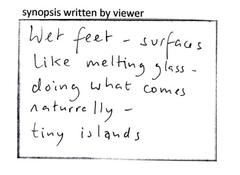 synopsis written by viewer
Wet feet - surfaces
Like melting glass -
doing what comes
naturrally -
tiny islands